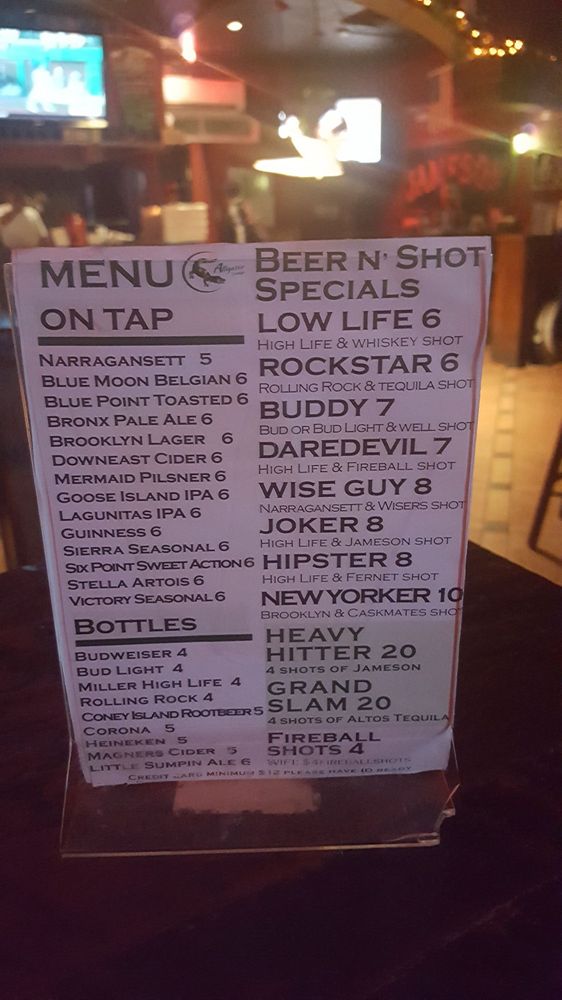 MENU
Alligator
ON TAP
NARRAGANSETT 5
BLUE MOON BELGIAN 6
BLUE POINT TOASTED 6
BRONX PALE ALE 6
BROOKLYN LAGER 6
DOWNEAST CIDER 6
MERMAID PILSNER 6
GOOSE ISLAND IPA 6
LAGUNITAS IPA 6
GUINNESS 6
SIERRA SEASONAL 6
SIX POINT SWEET ACTION 6
STELLA ARTOIS 6
VICTORY SEASONAL 6
BOTTLES
BUDWEISER 4
BUD LIGHT 4
MILLER HIGH LIFE 4
ROLLING ROCK 4
CONEY ISLAND ROOTBEER 5
CORONA 5
HEINEKEN 5
MAGNERS CIDER 5
LITTLE SUMPIN ALE 6
BEER N' SHOT
SPECIALS
LOW LIFE 6
HIGH LIFE & WHISKEY SHOT
ROCKSTAR 6
ROLLING ROCK & TEQUILA SHOT
BUDDY 7
BUD OR BUD LIGHT & WELL SHOT
DAREDEVIL 7
HIGH LIFE & FIREBALL SHOT
WISE GUY 8
NARRAGANSETT & WISERS SHOT
JOKER 8
HIGH LIFE & JAMESON SHOT
HIPSTER 8
HIGH LIFE & FERNET SHOT
NEW YORKER 10
BROOKLYN & CASKMATES SHO
HEAVY
HITTER 20
4 SHOTS OF JAMESON
GRAND
SLAM 20
4 SHOTS OF ALTOS TEQUILA
FIREBALL
SHOTS 4
WIFI: $4FIREBALLSHOTS
CREDIT CARD MINIMUM $12 PLEASE HAVE ID READY
JAMESON